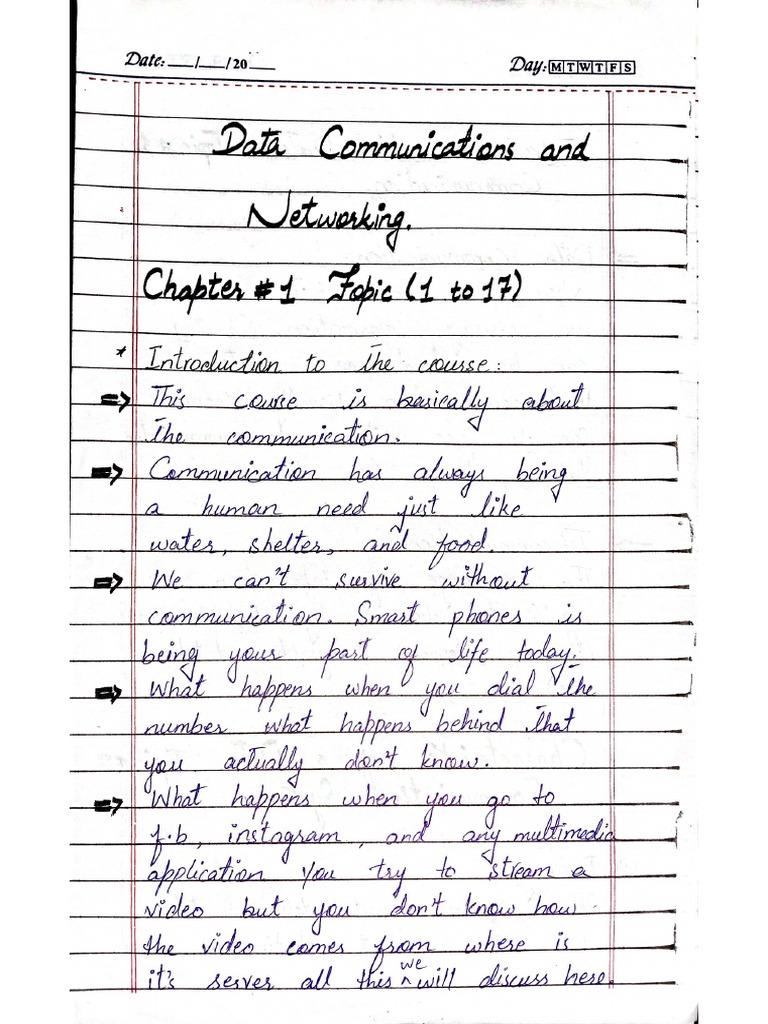 Date: __/__/20__ Day: M T W T F S
Data Communications and
Networking.
Chapter # 1 Topic (1 to 17)
* Introduction to the course:
⇒ This course is basically about
the communication.
⇒ Communication has always being
a human need just like
water, shelter, and food.
⇒ We can't survive without
communication. Smart phones is
being your part of life today.
⇒ What happens when you dial the
number what happens behind that
you actually don't know.
⇒ What happens when you go to
f.b, instagram, and any multimedia
application you try to stream a
video but you don't know how
the video comes from where is
it's server all this we will discuss here.